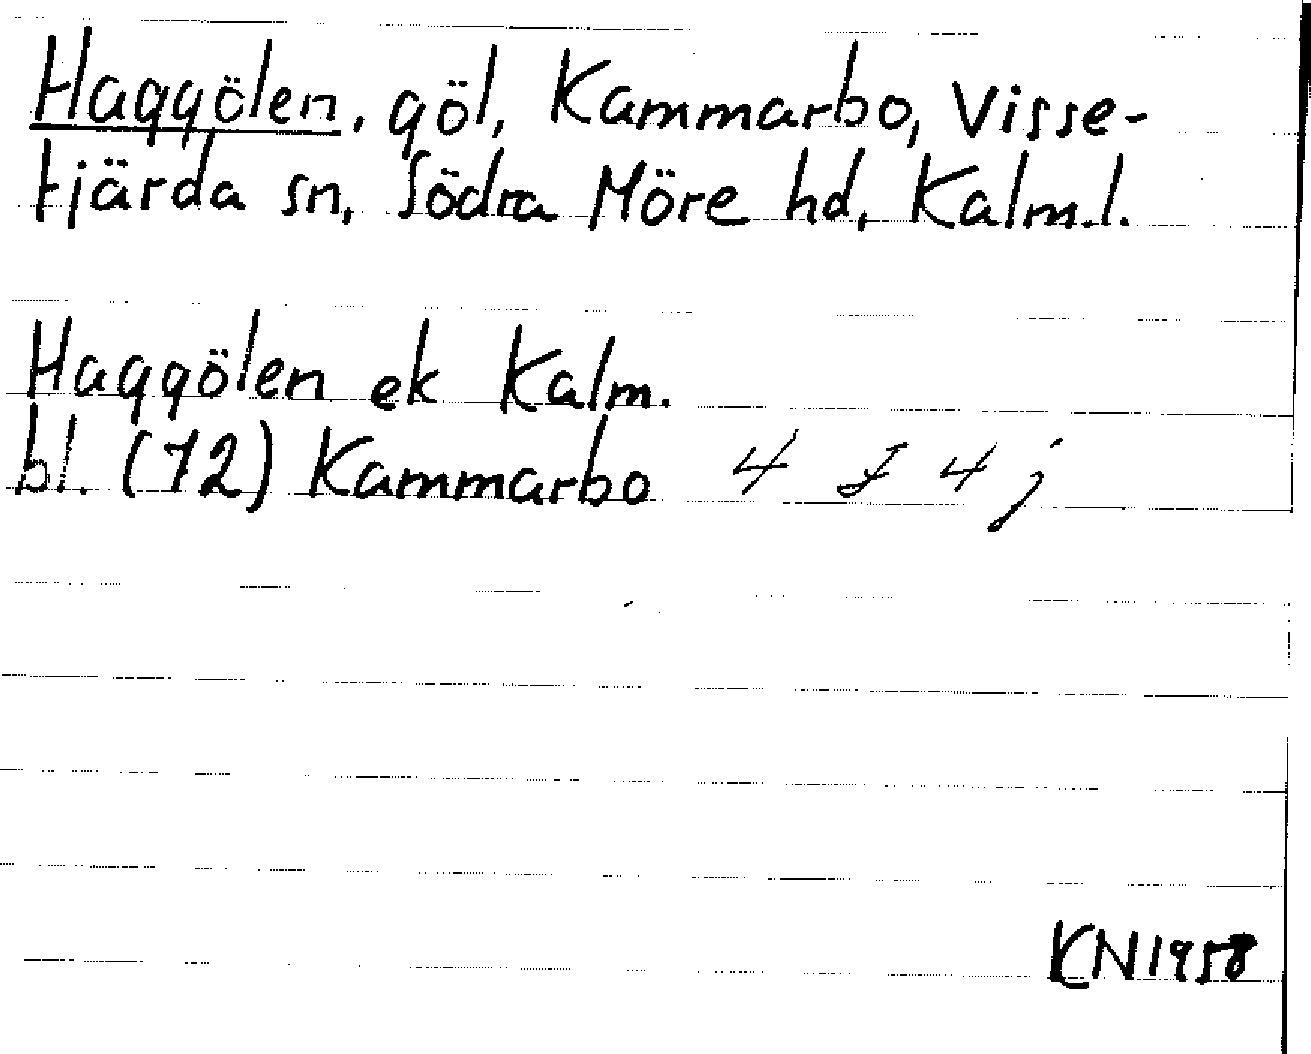 Haggölen, göl, Kammarbo, Visse-
fjärda sn, Södra Möre hd, Kalm.l.
Haggölen ek Kalm.
bl. (72) Kammarbo 4 I 4 j
KN1958